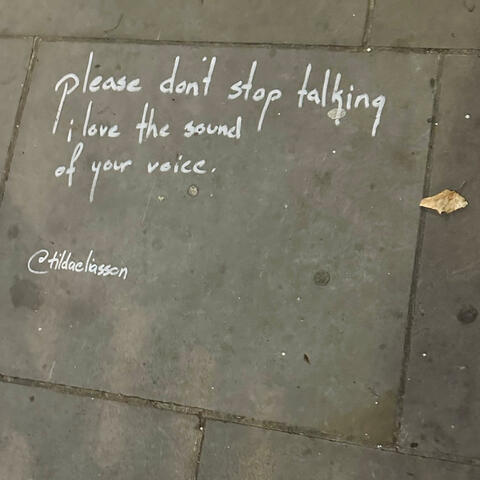 please don't stop talking
i love the sound
of your voice.
@tildaeliasson